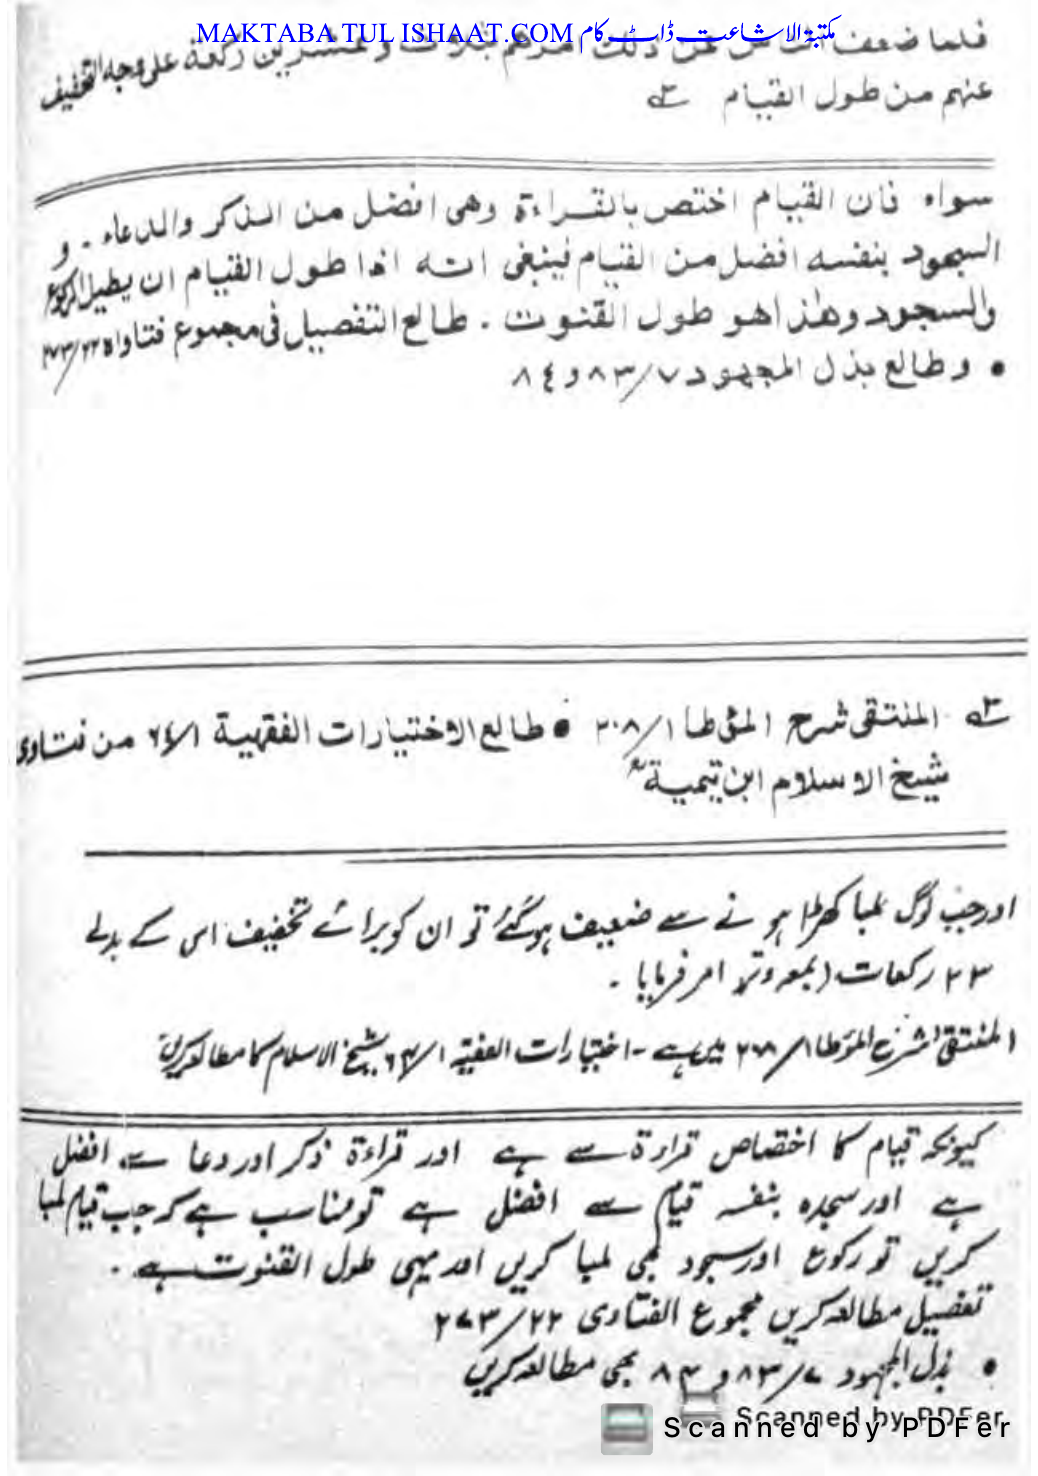 MAKTABA TUL ISHAAT.COM مکتبۃ الاشاعت ڈاٹ کام
فلما ضعف الناس عن ذلك امرهم بثلاث وعشرين ركعة على وجه التخفيف
عنهم من طول القيام
سواء فان القيام اختص بالقراءة وهي افضل من الذكر والدعاء ـ و
السجود بنفسه افضل من القيام فينبغي انه اذا طول القيام ان يطيل الركوع
والسجود وهذا هو طول القنوت ۔ طالع التفصيل في مجموع فتاواه ٢٢/٢٧٣
• وطالع بذل المجهود ٧/٨٣ و ٨٤
المنتقى شرح المؤطا ١/٢٠٨ • طالع الاختيارات الفقهية ١/٦٤ من فتاوى
شيخ الاسلام ابن تيمية
اور جب لوگ لمبا کھڑا ہونے سے ضعیف ہوگئے تو ان کو برائے تخفیف اس کے بدلے
۲۳ رکعات (بمعہ وتر) امر فرمایا ۔
المنتقیٰ شرح المؤطا ۱/ میں ہے ۔ اختیارات الفقیۃ ۱/۶۴ شیخ الاسلام کا مطالعہ کریں
کیونکہ قیام کا اختصاص قراءۃ سے ہے اور قراءۃ ذکر اور دعا سے افضل
ہے اور سجدہ بنفسہ قیام سے افضل ہے تو مناسب ہے کہ جب قیام لمبا
کریں تو رکوع اور سجود بھی لمبا کریں اور یہی طول القنوت ہے ۔
تفصیل مطالعہ کریں مجموع الفتاوی ۲۲/۲۷۳
• بذل المجہود ۷/۸۳ و ۸۴ بھی مطالعہ کریں
Scanned by PDFer
Scanned by PDFer